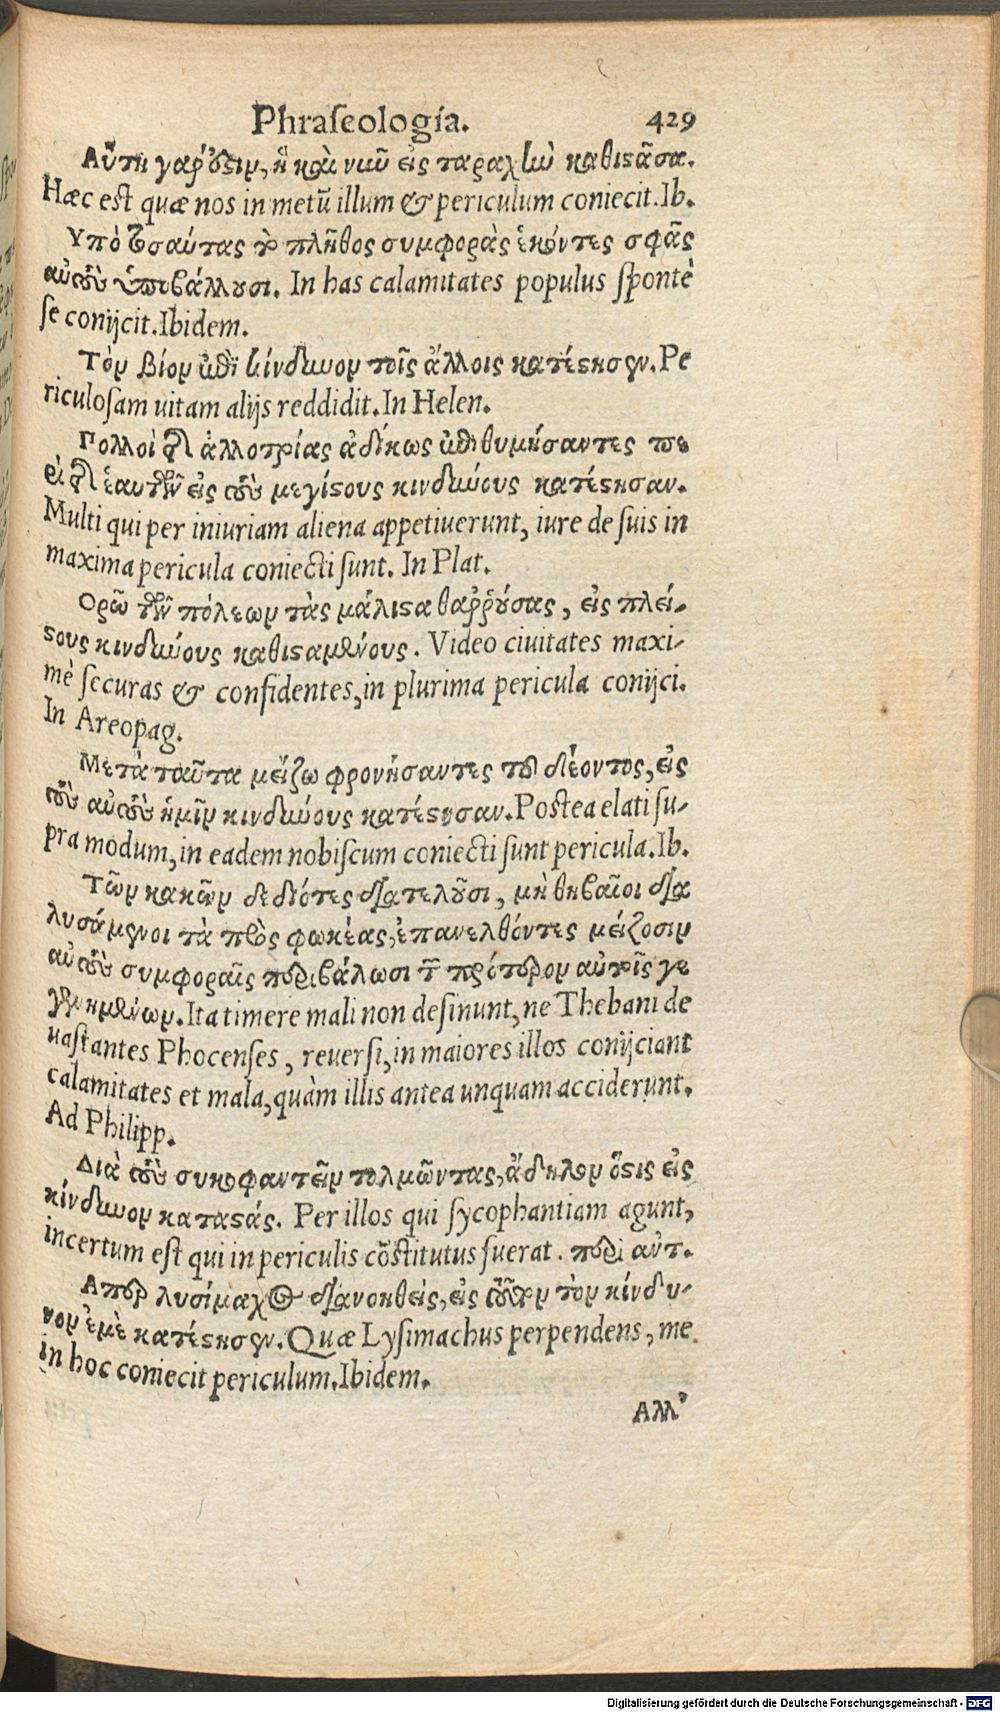 Phraseologia. 429
Αὕτη γάρ ὅζιν, ἣ καὶ νιῦ εἰς ταραχὴν καθιςᾶσα.
Hæc est quæ nos in metū illum & periculum coniecit. Ib.
Υπὸ τοσαύτας τὸ πλῆθος συμφορὰς ἑκόντες σφᾶς
αὐτοὺς ὑποβάλλουσι. In has calamitates populus spontè
se conijcit. Ibidem.
Τὸν βίον ἐπὶ κίνδυνον τοῖς ἄλλοις κατέςησεν. Pe
riculosam uitam alijs reddidit. In Helen.
Πολλοὶ τῶν ἀλλοτρίας ἀδίκως ἐπιθυμήσαντες πε
ρὶ τῶν ἑαυτῶν εἰς τοὺς μεγίςους κινδύνους κατέςησαν.
Multi qui per iniuriam aliena appetiuerunt, iure de suis in
maxima pericula coniecti sunt. In Plat.
Ορῶ τῶν πόλεων τὰς μάλιςα θαῤῥούσας, εἰς πλεί-
ςους κινδύνους καθιςαμένους. Video ciuitates maxi-
mè securas & confidentes, in plurima pericula conijci.
In Areopag.
Μετὰ ταῦτα μείζω φρονήσαντες τοῦ δέοντος, εἰς
τοὺς αὐτοὺς ἡμῖν κινδύνους κατέςησαν. Postea elati su-
pra modum, in eadem nobiscum coniecti sunt pericula. Ib.
Τῶν κακῶν δεδιότες διατελοῦσι, μὴ θηβαῖοι δια
λυσάμενοι τὰ πρὸς φωκέας, ἐπανελθόντες μείζοσιν
αὐτοὺς συμφοραῖς περιβάλωσι τῶν πρότερον αὐτοῖς γε
γενημένων. Ita timere mali non desinunt, ne Thebani de
uastantes Phocenses, reuersi, in maiores illos conijciant
calamitates et mala, quàm illis antea unquam acciderunt.
Ad Philipp.
Διὰ τοὺς συκοφαντεῖν τολμῶντας, ἄδηλον ὅςις εἰς
κίνδυνον καταςάς. Per illos qui sycophantiam agunt,
incertum est qui in periculis cōstitutus fuerat. περὶ αὐτ.
Απερ λυσίμαχος διανοηθείς, εἰς τοῦτον τὸν κίνδυ-
νον ἐμὲ κατέςησεν. Quæ Lysimachus perpendens, me
in hoc coniecit periculum. Ibidem.
Αλλ᾽
Digitalisierung gefördert durch die Deutsche Forschungsgemeinschaft - DFG